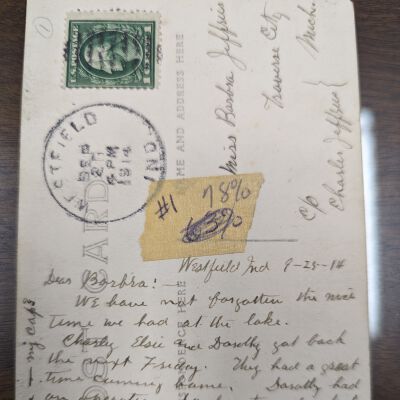 1
U.S. POSTAGE
WESTFIELD
SEP
4 PM
1914
IND.
Miss Barbra Jeffries
Traverse City
Mich.
c/o
Charles Jeffries
NAME AND ADDRESS HERE
CARD
#1 78%
63%
Westfield Ind 9-25-14
Dear Barbra:—
We have not forgotten the nice
time we had at the lake.
Charley Elsie and Dorothy got back
the next Friday. They had a great
time coming home. Dorothy had
an
CORRESPONDENCE HERE